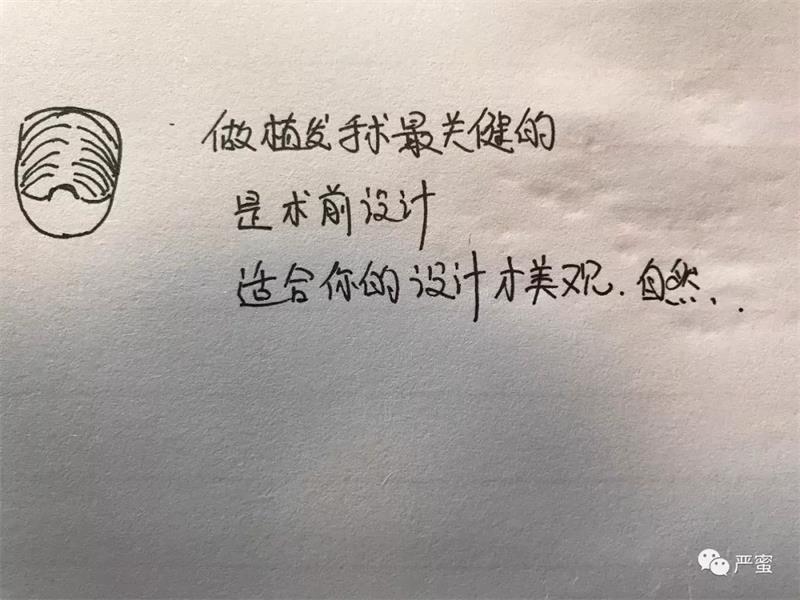 做植发手术最关健的
是术前设计
适合你的设计才美观.自然、.
严蜜